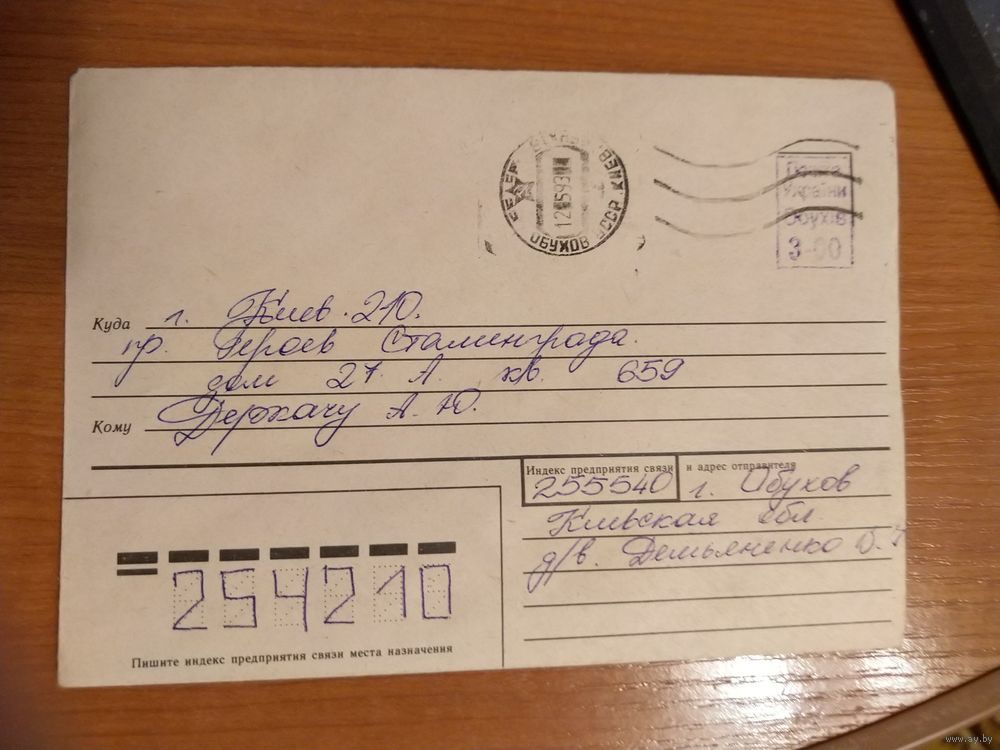 12 5 93
ОБУХОВ
ССР
КИЕВ
Пошта
України
Обухів
3-00
Куда г. Киев. 210.
пр. Героев Сталинграда.
дом 27 А. кв. 659
Кому Держачу А. Ю.
Индекс предприятия связи и адрес отправителя
255540 г. Обухов
Киевская обл
д/в. Демьяненко
254210
Пишите индекс предприятия связи места назначения
www.ay.by